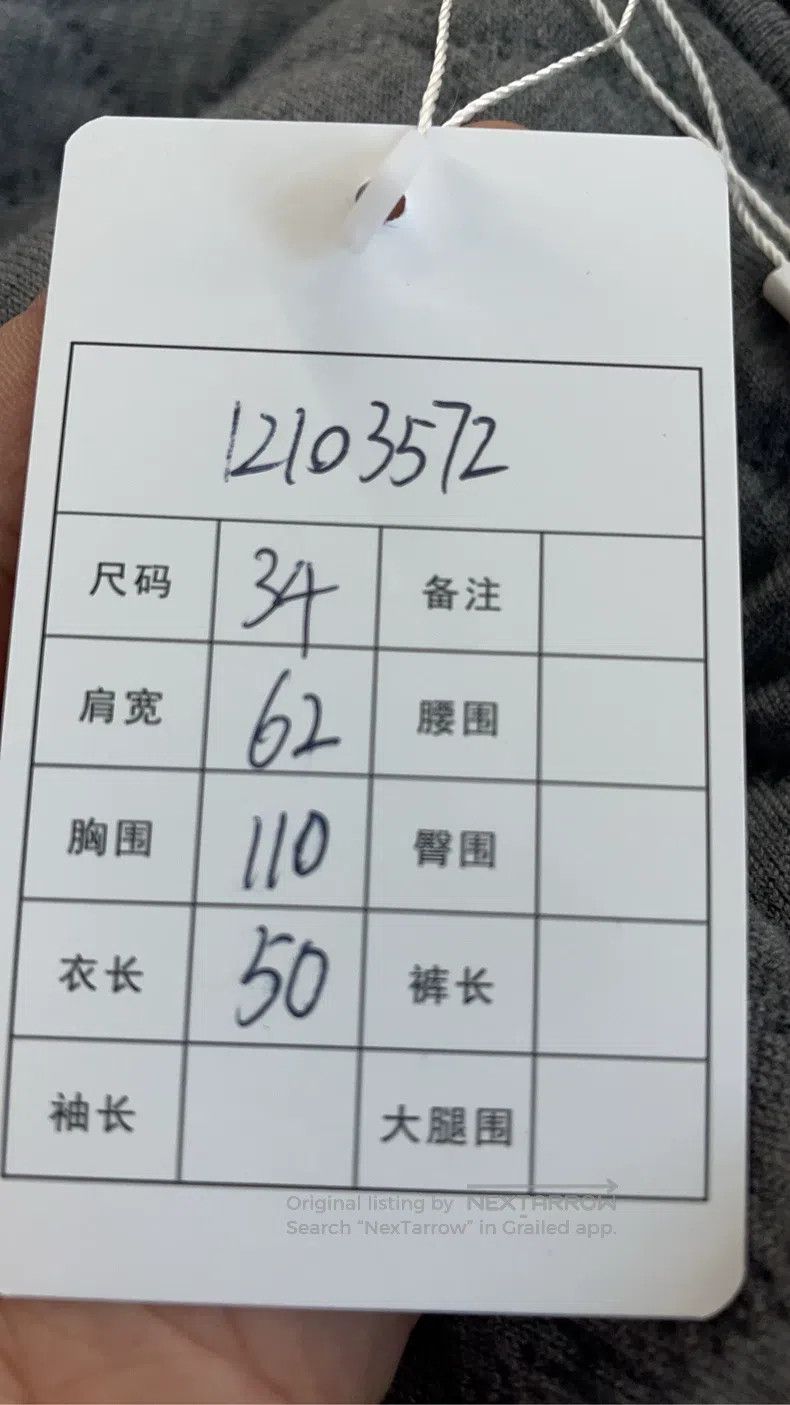 12103572
尺码 34 备注
肩宽 62 腰围
胸围 110 臀围
衣长 50 裤长
袖长 大腿围
Original listing by NEXTARROW
Search “NexTarrow” in Grailed app.